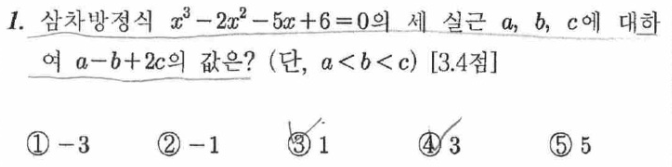 1. 삼차방정식 x³-2x²-5x+6=0의 세 실근 a, b, c에 대하
여 a-b+2c의 값은? (단, a<b<c) [3.4점]
① -3 ② -1 ③ 1 ④ 3 ⑤ 5